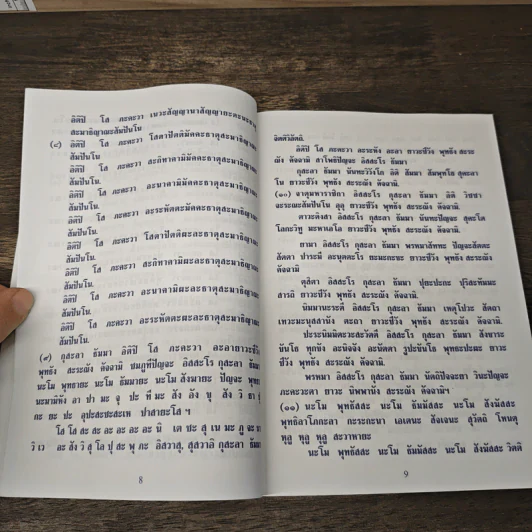 อิติปิ โส ภะคะวา เนวะสัญญานาสัญญายะตะนะธาตุ
สะมาธิญาณะสัมปันโน
(๘) อิติปิ โส ภะคะวา โสตาปัตติมัคคะธาตุสะมาธิญาณะ
สัมปันโน
อิติปิ โส ภะคะวา สะกิทาคามิมัคคะธาตุสะมาธิญาณะ
สัมปันโน.
อิติปิ โส ภะคะวา อะนาคามิมัคคะธาตุสะมาธิญาณะ
สัมปันโน.
อิติปิ โส ภะคะวา อะระหัตตะมัคคะธาตุสะมาธิญาณะ
สัมปันโน.
อิติปิ โส ภะคะวา โสตาปัตติผะละธาตุสะมาธิญาณะ
สัมปันโน.
อิติปิ โส ภะคะวา สะกิทาคามิผะละธาตุสะมาธิญาณะ
สัมปันโน.
อิติปิ โส ภะคะวา อะนาคามิผะละธาตุสะมาธิญาณะ
สัมปันโน.
อิติปิ โส ภะคะวา อะระหัตตะผะละธาตุสะมาธิญาณะ
สัมปันโน.
(๙) กุสะลา ธัมมา อิติปิ โส ภะคะวา อะอายาวะชีวัง
พุทธัง สะระณัง คัจฉามิ ชมภูทีปัญจะ อิสสะโร กุสะลา ธัมมา
นะโม พุทธายะ นะโม ธัมมายะ นะโม สังฆายะ ปัญจะ พุทธา
นะมามิหัง อา ปา มะ จุ ปะ ที มะ สัง อัง ขุ สัง วิ ธา
กะ ยะ ปะ อุปะสะชะสะเห ปาสายะโส ฯ
โส โส สะ สะ อะ อะ อะ อะ นิ เต ชะ สุ เน มะ ภู จะ
วิ เว อะ สัง วิ สุ โล ปุ สะ พุ ภะ อิสวาสุ, สุสวาอิ กุสะลา ธัมมา
8
จิตติวิอัตถิ.
อิติปิ โส ภะคะวา อะระหัง อะอา ยาวะชีวัง พุทธัง สะระ
ณัง คัจฉามิ สาโพธิปัญจะ อิสสะโร ธัมมา
กุสะลา ธัมมา นันทะวิวังโก อิติ สัมมา สัมพุทโธ สุคะลา
โน ยาวะชีวัง พุทธัง สะระณัง คัจฉามิ.
(๑๐) จาตุมหาราชิกา อิสสะโร กุสะลา ธัมมา อิติ วิชชา
จะระณะสัมปันโน อุอุ ยาวะชีวัง พุทธัง สะระณัง คัจฉามิ.
ตาวะติงสา อิสสะโร กุสะลา ธัมมา นันทะปัญจะ สุคะโต
โลกะวิทู มะหาเอโอ ยาวะชีวัง พุทธัง สะระณัง คัจฉามิ.
ยามา อิสสะโร กุสะลา ธัมมา พรหมาสัททะ ปัญจะสัตตะ
สัตตา ปาระมี อะนุตตะโร ยะมะกะขะ ยาวะชีวัง พุทธัง สะระณัง
คัจฉามิ
ตุสิตา อิสสะโร กุสะลา ธัมมา ปุยะปะกะ ปุริสะทัมมะ
สารถิ ยาวะชีวัง พุทธัง สะระณัง คัจฉามิ.
นิมมานะระตี อิสสะโร กุสะลา ธัมมา เหตุโปวะ สัตถา
เทวะมะนุสสานัง ตะถา ยาวะชีวัง พุทธัง สะระณัง คัจฉามิ.
ปะระนิมมิตะวะสะวัตตี อิสสะโร กุสะลา ธัมมา สังขาระ
ขันโธ ทุกขัง อะนิจจัง อะนัตตา รูปะขันโธ พุทธะปะผะ ยาวะ
ชีวัง พุทธัง สะระณัง คัจฉามิ.
พรหมา อิสสะโร กุสะลา ธัมมา นัตถิปัจจะยา วินะปัญจะ
ภะคะวะตา ยาวะ นิพพานัง สะระณัง คัจฉามิฯ
(๑๑) นะโม พุทธัสสะ นะโม ธัมมัสสะ นะโม สังฆัสสะ
พุทธิลาโภกะลา กะระกะนา เอเตนะ สัจเจนะ สุวัตถิ โหนตุ
หุลู หุลู หุลู สะวาหายะ
นะโม พุทธัสสะ นะโม ธัมมัสสะ นะโม สังฆัสสะ วิตติ
9